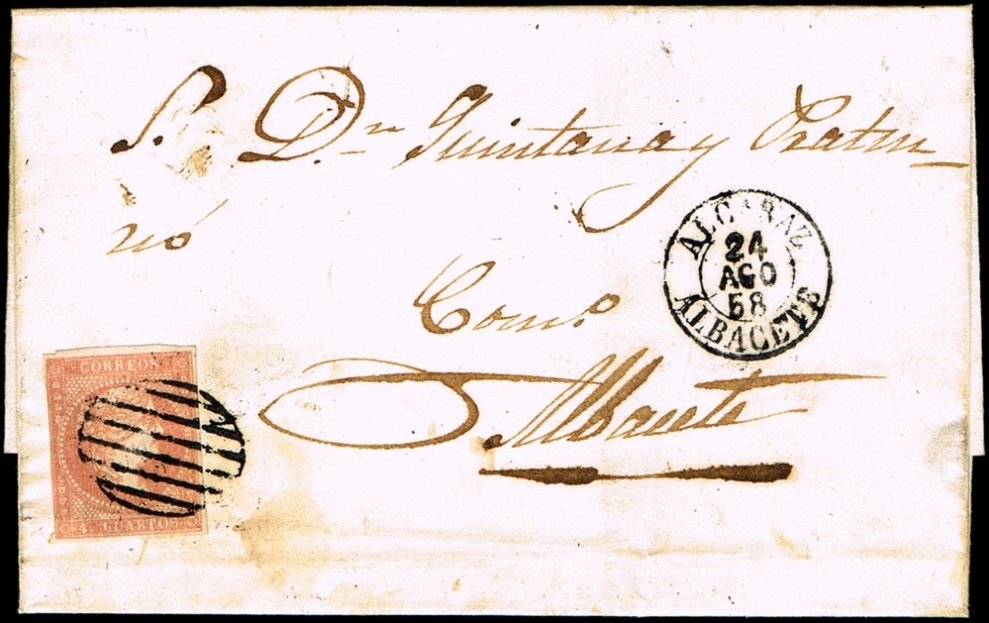 S. Dn Quintana y Pratm
nó
Com.o
Albacete
ALCARAZ
24
AGO
58
ALBACETE
CORREOS
4 CUARTOS